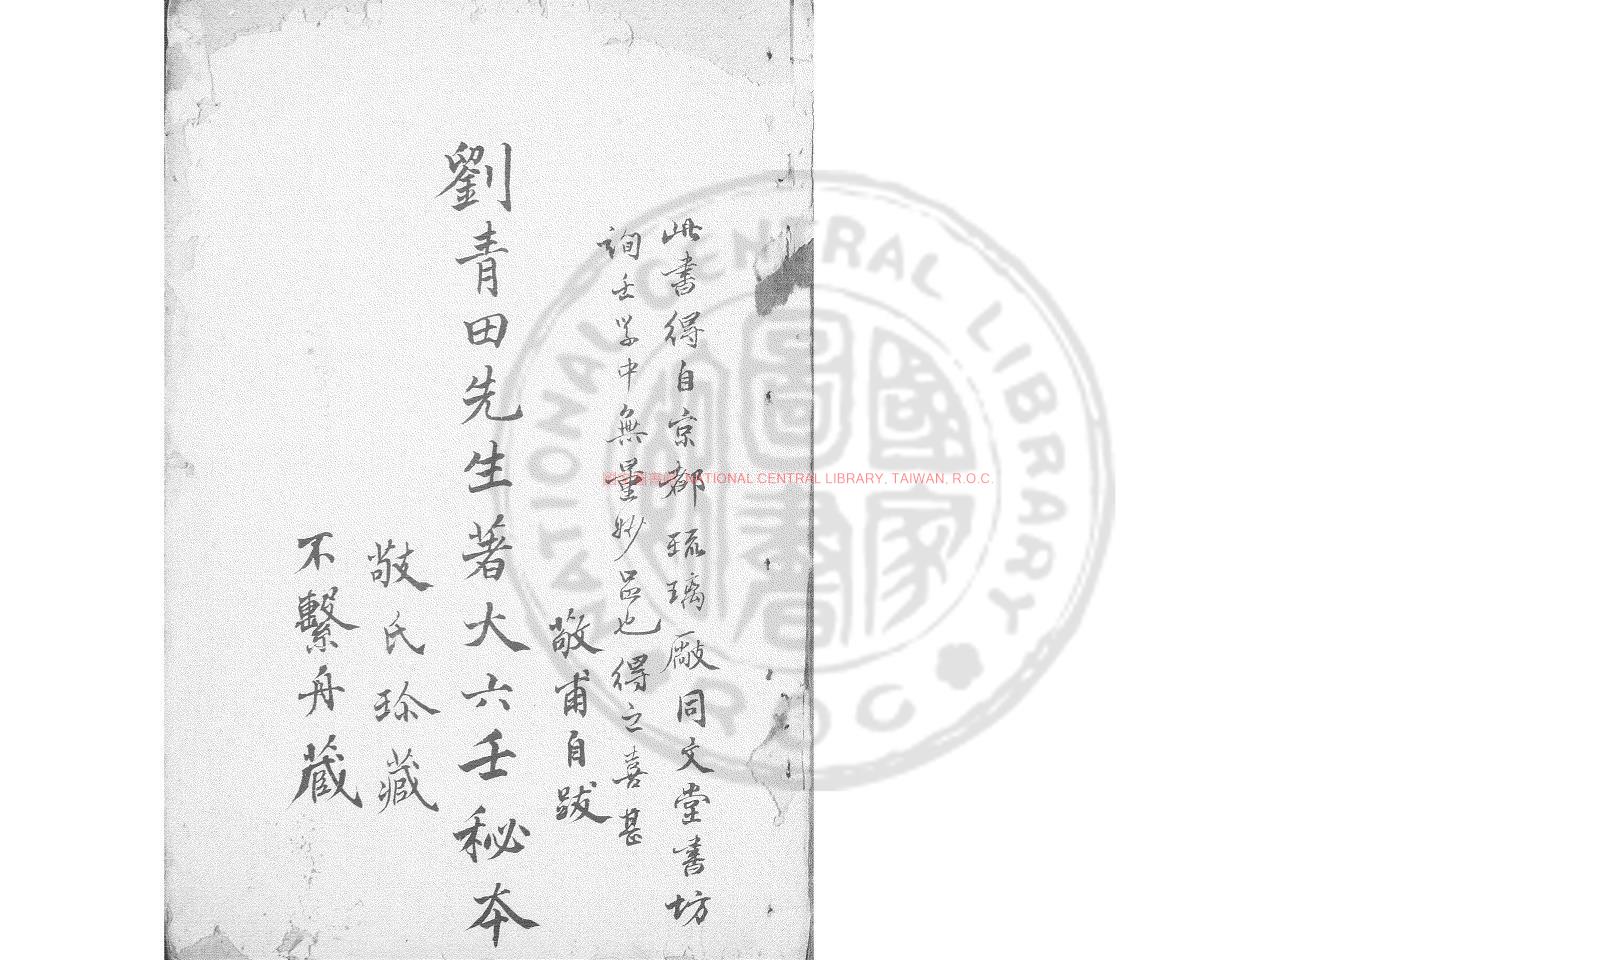 此書得自京都琉璃厰同文堂書坊
詢壬学中無量妙品也得之喜甚
敬甫自跋
劉青田先生著大六壬秘本
敬氏珍藏
不繫舟藏
國家圖書館 NATIONAL CENTRAL LIBRARY, TAIWAN, R.O.C.
NATIONAL CENTRAL LIBRARY
R O C
國家圖書館